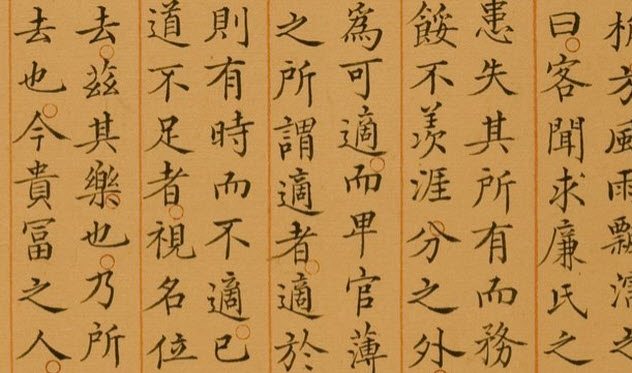 方風雨飄
曰客聞求廉氏之
患失其所有而務
餒不羨涯分之外
爲可適而卑官薄
之所謂適者適於
則有時而不適已
道不足者視名位
去茲其樂也乃所
去也今貴冨之人